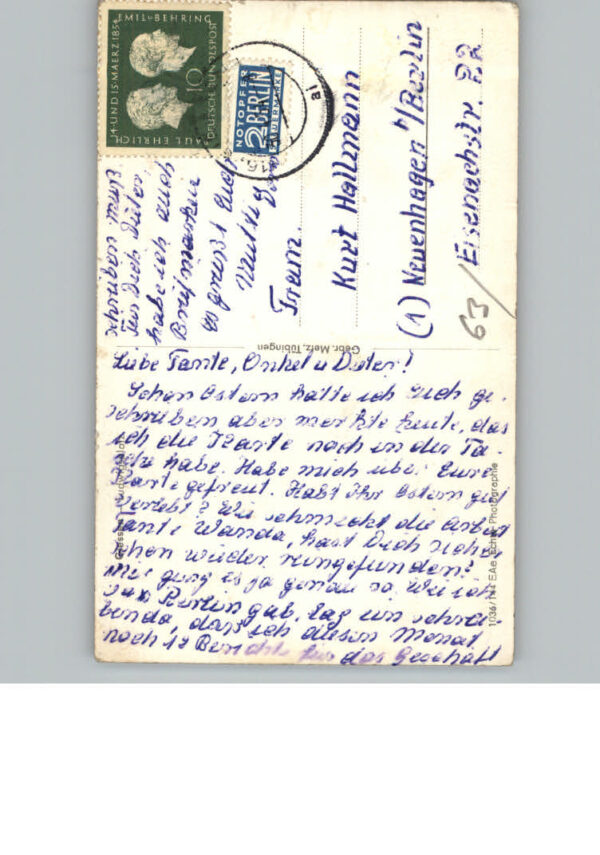 Liebe Tante, Onkel u Dieter!
Schon Ostern hatte ich Euch ge-
schrieben aber merkte heute, das
ich die Karte noch in der Ta-
sche habe. Habe mich über Eure
Karte gefreut. Habt Ihr Ostern gut
verlebt? Wie schmeckt die Arbeit
Tante Wanda, hast Dich sicher
schon wieder reingefunden?
Mir ging es ja genau so. Wie ich
Berlin gab, lag ein schrei
benda, dass ich diesen Monat
noch 17 Berichte für das Geschäft
schreiben muß
Für Dich Dieter,
habe ich auch
Briefmarken
es grüßt Euch
Frau
Kurt Hallmann
(1) Neuenhagen b/Berlin
Eisenachstr. 22
63/
14. UND 15. MAERZ 1854
EMIL v BEHRING
PAUL EHRLICH
10
DEUTSCHE BUNDESPOST
NOTOPFER
2 BERLIN
STEUERMARKE
Gebr. Metz, Tübingen
1036/144 EAe Echte Photographie